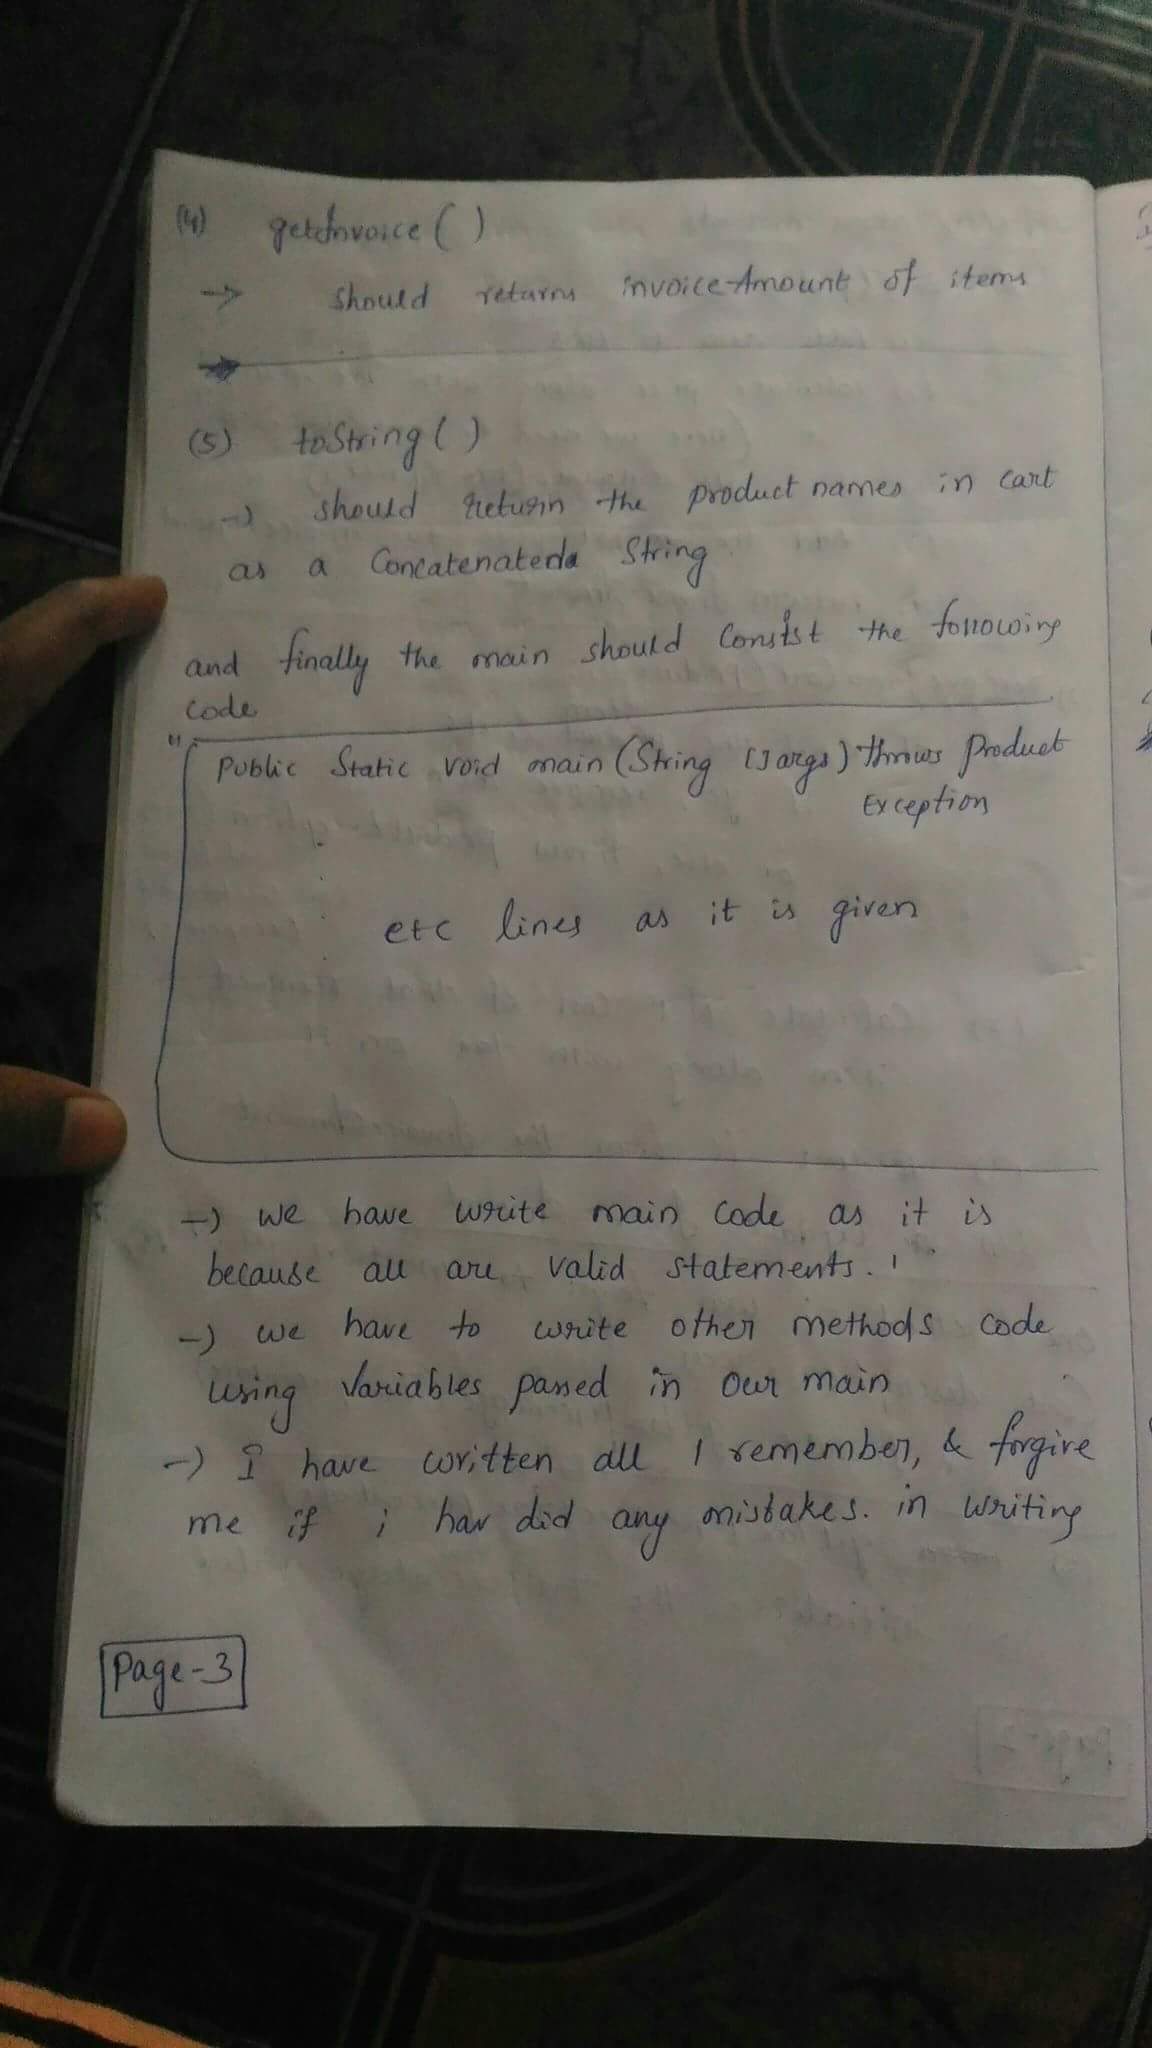 (4) getInvoice ( )
→ should returns invoiceAmount of items
(5) toString ( )
→ should return the product names in cart
as a Concatenated String
and finally the main should Consist the following
code
" Public Static void main (String []args) throws Product
Exception
etc lines as it is given
→ we have write main code as it is
because all are valid statements.
→ we have to write other methods code
using Variables passed in our main
→ I have written all I remember, & forgive
me if i hav did any mistakes. in writing
Page-3